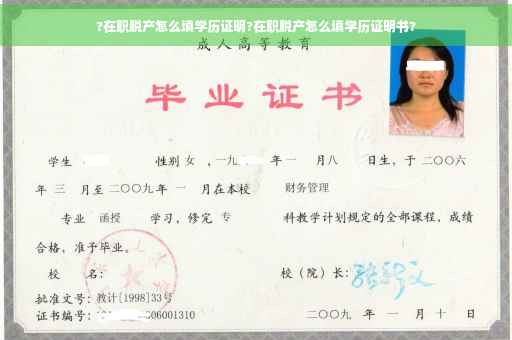 ?在职脱产怎么填学历证明?在职脱产怎么填学历证明书?
成人高等教育
毕业证书
学生 性别 女 ,一九 年一 月八 日生,于二〇〇六
年 三 月至二〇〇九年 一 月在本校 财务管理
专业 函授 学习,修完 专 科教学计划规定的全部课程,成绩
合格,准予毕业。
校 名: 校(院)长:
批准文号:教计[1998]33号
证书编号: 006001310 二〇〇九 年 一 月 十 日